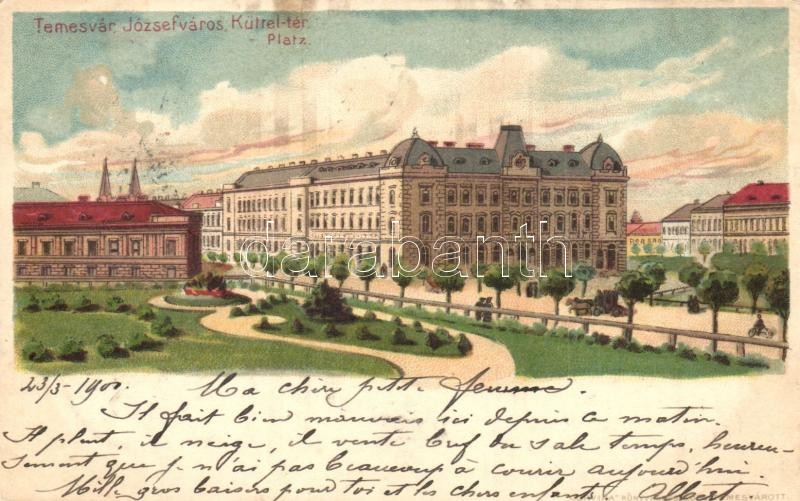 Temesvár, Józsefváros, Küttel-tér.
Platz.
darabanth
23/3-1900. Ma chère petite femme.
Il fait bien mauvais ici depuis ce matin.
Il pleut, il neige, il vente bref du sale temps, heureu-
sement que je n'ai pas beaucoup à courir aujourd'hui
Mille gros baisers pour toi et les chers enfants Albert
TEMESVÁROTT.